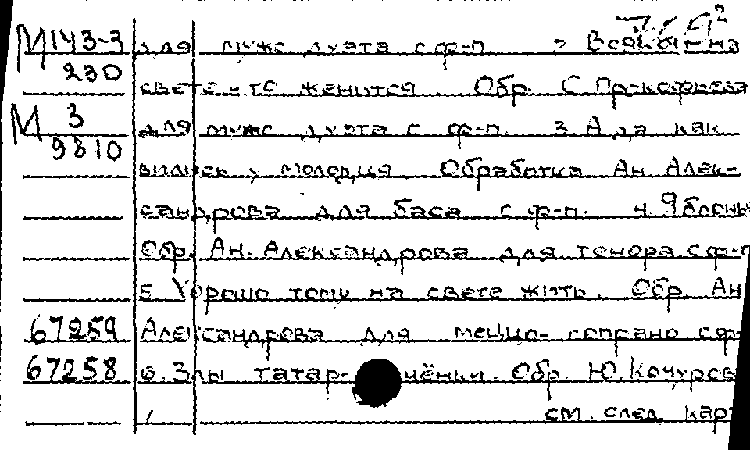 М 143-3 для мужс дуэта с ф-п. 2 Всякой на
230 свете-то женится. Обр. С. Прокофьева
М 3 для мужс дуэта с ф-п. 3. А да как
9310 вились у молодца Обработка Ан. Алек-
сандрова для баса с ф-п. 4. Яблонь
Обр. Ан. Александрова для тенора с ф-п
5 Хорошо тому на свете жить. Обр. Ан
67259 Александрова для меццо-сопрано с ф-
67258 6. Злы татар- чёнки. Обр. Ю. Кочуров
см. след. карт